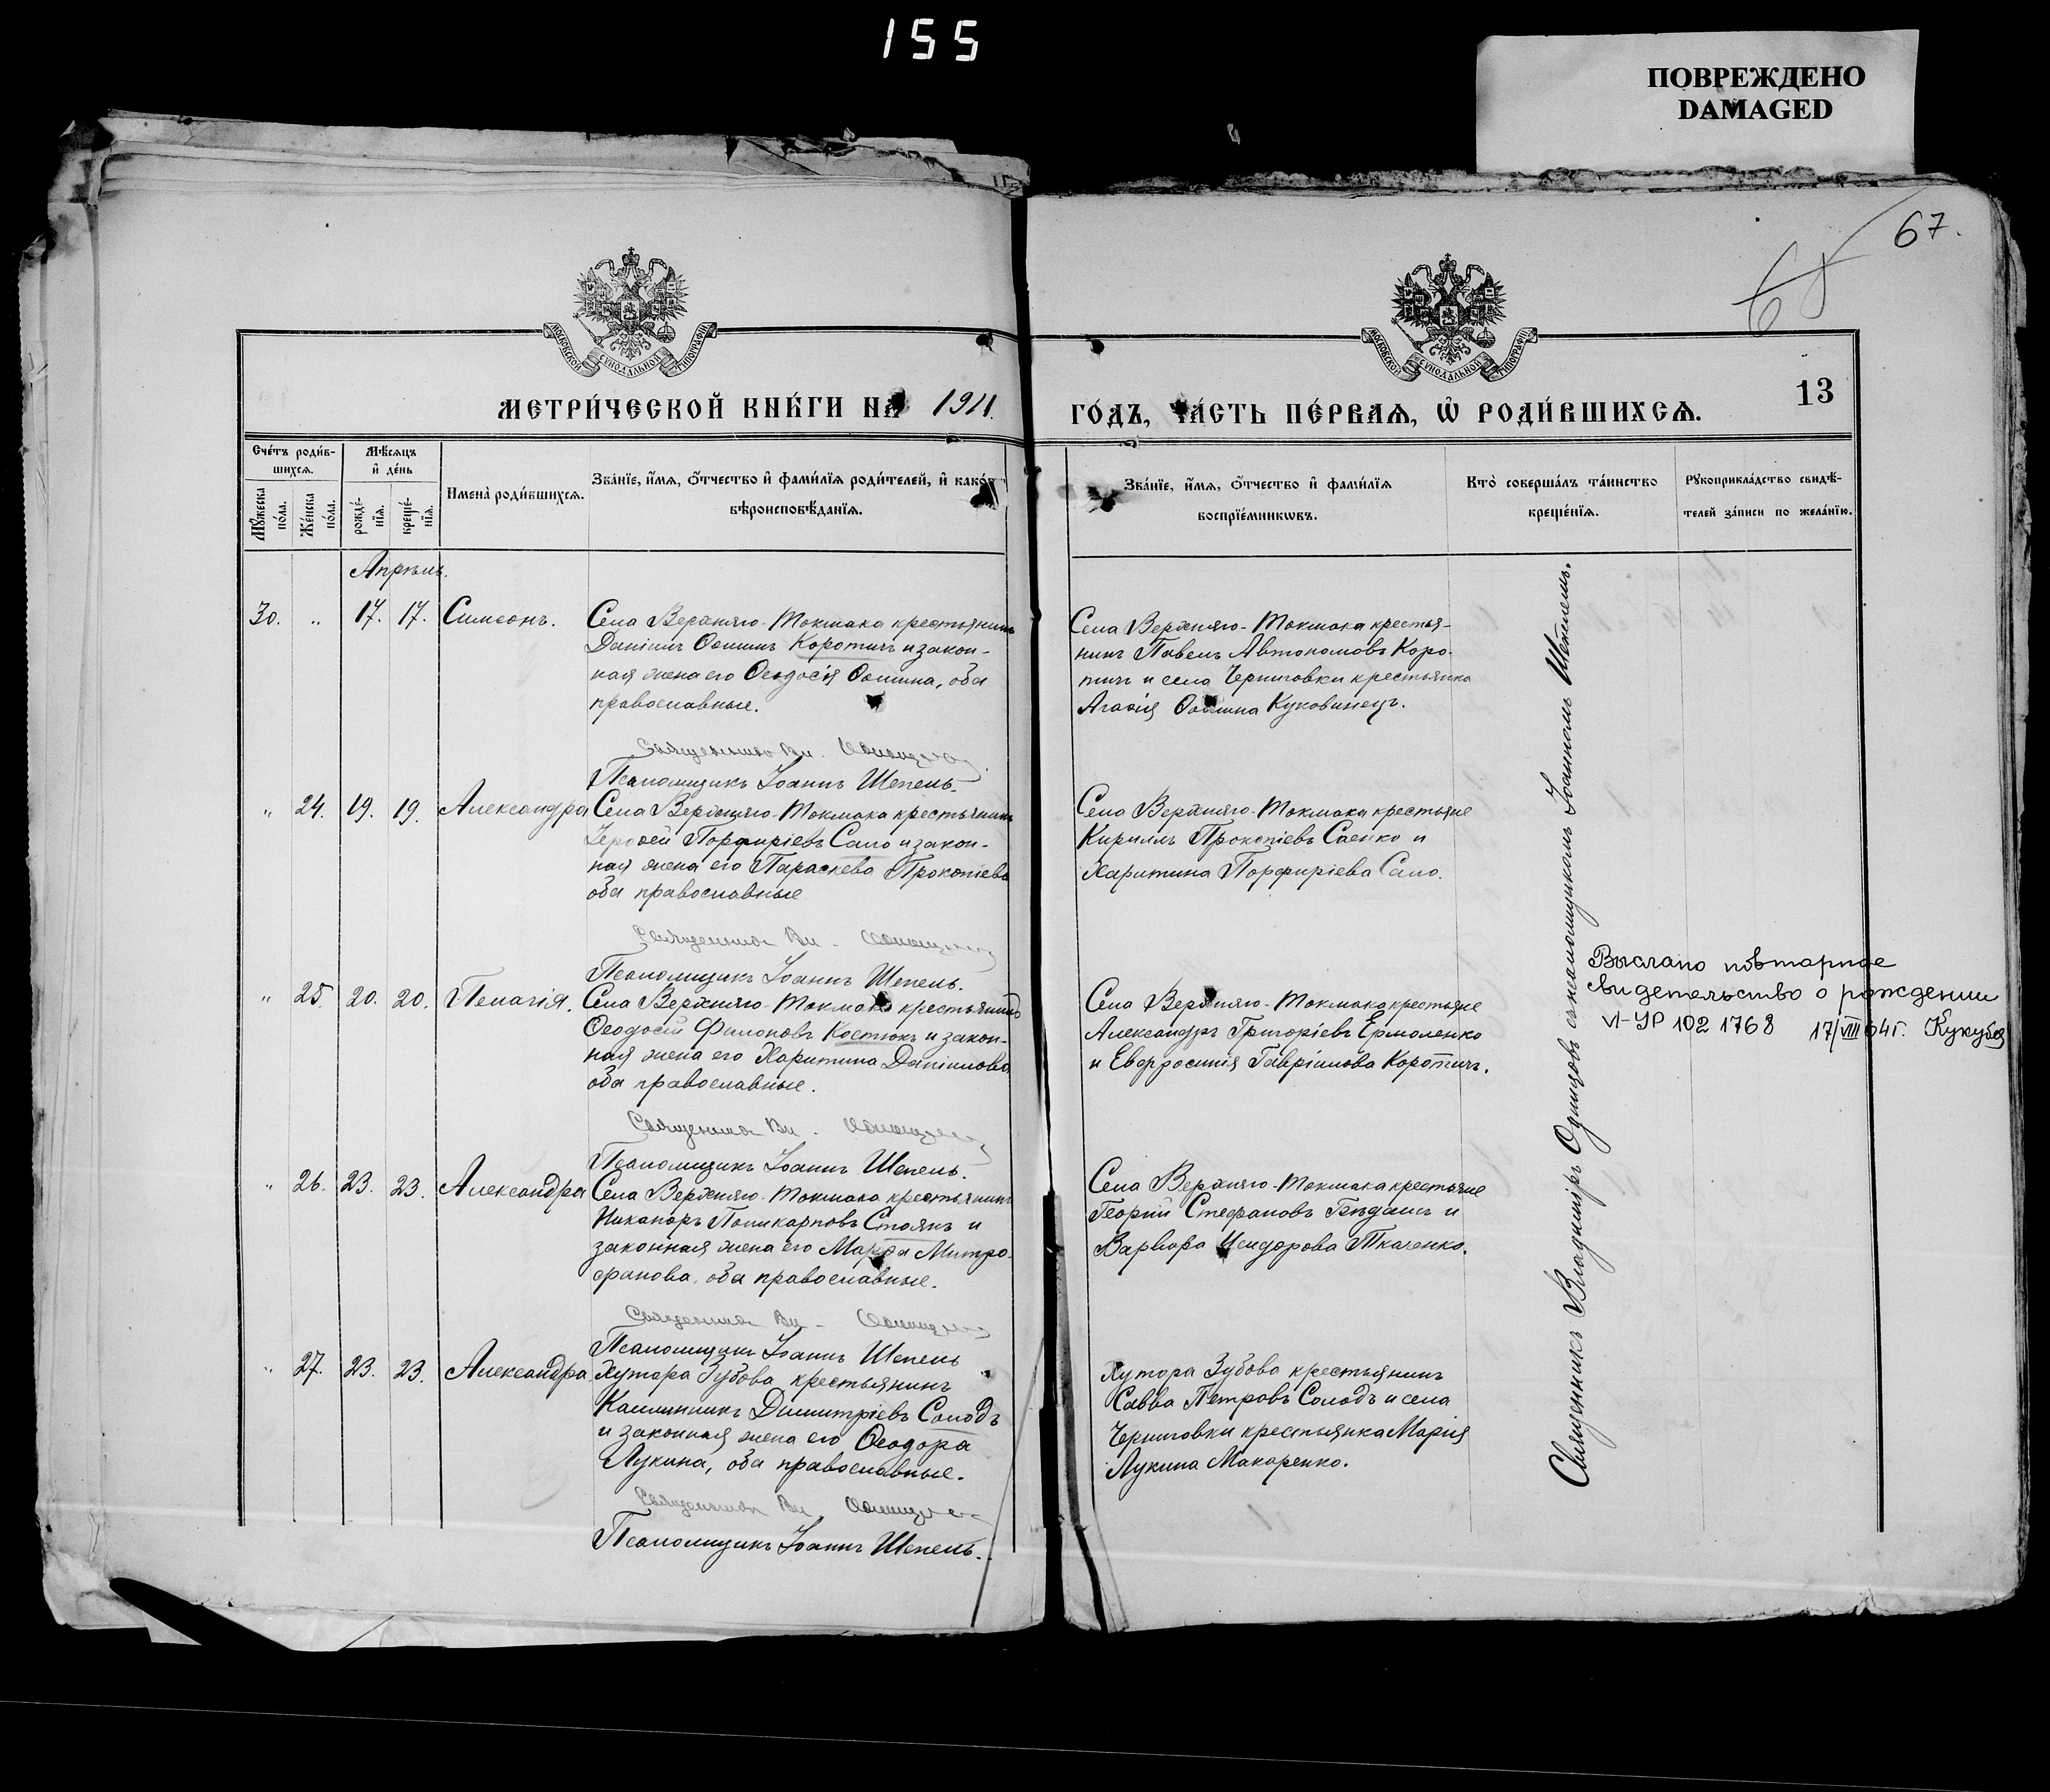 155
ПОВРЕЖДЕНО
DAMAGED
67.
65
МОСКОВСКОЙ СѴНОДАЛЬНОЙ ТИПОГРАФІИ
МОСКОВСКОЙ СѴНОДАЛЬНОЙ ТИПОГРАФІИ
МЕТРИ́ЧЕСКОЙ КНИ́ГИ НА 1911.
ГО́ДЪ, ЧА́СТЬ ПЕ́РВАѦ, Ѡ҆ РОДИ́ВШИХСѦ.
13
Сче́тъ роди́в-
шихсѧ.
Мꙋ́жеска
по́ла.
Же́нска
по́ла.
Мѣ́сѧцъ
и҆ де́нь
рожде́-
нїѧ.
креще́-
нїѧ.
Имена̀ роди́вшихсѧ.
Зва́нїе, и҆́мѧ, ѻ҆́тчество и҆ фами́лїѧ роди́телей, и҆ како́гѡ
вѣроисповѣ́данїѧ.
Зва́нїе, и҆́мѧ, ѻ҆́тчество и҆ фами́лїѧ
воспрїе́мникѡвъ.
Кто̀ соверша́лъ та́инство
креще́нїѧ.
Рꙋкоприкла́дство свидѣ́-
телей за́писи по жела́нїю.
Апрѣль.
30. „ 17. 17. Симеонъ.
Села Верхняго-Токмака крестьянинъ
Даніилъ Ѳоминъ Коротичъ и закон-
ная жена его Ѳеодосія Ѳомина, оба
православные.
Священникъ Вл. Одинцовъ
Псаломщикъ Іоаннъ Шепель.
Села Верхняго-Токмака крестья-
нинъ Павелъ Автономовъ Коро-
тичъ и села Черниговки крестьянка
Агаѳія Ѳомина Куковинецъ.
„ 24. 19. 19. Александра
Села Верхняго-Токмака крестьянинъ
Іероѳей Порфиріевъ Сало и закон-
ная жена его Параскева Прокопіева
оба православные
Священникъ Вл. Одинцовъ
Псаломщикъ Іоаннъ Шепель.
Села Верхняго-Токмака крестьяне
Кириллъ Прокопіевъ Саенко и
Харитина Порфиріева Сало.
„ 25. 20. 20. Пелагія.
Села Верхняго-Токмака крестьянинъ
Ѳеодосій Филоновъ Костюкъ и закон-
ная жена его Харитина Даніилова
оба православные.
Священникъ Вл. Одинцовъ
Псаломщикъ Іоаннъ Шепель.
Села Верхняго-Токмака крестьяне
Александръ Григоріевъ Ермоленко
и Евфросинія Гавріилова Коротичъ.
Выслано повторное
свидетельство о рождении
VI-УР 102 1768 17/VIII 64г. Кукуба
„ 26. 23. 23. Александра
Села Верхняго-Токмака крестьянинъ
Никаноръ Поликарповъ Стоянъ и
законная жена его Марѳа Митро-
фанова, оба православные.
Священникъ Вл. Одинцовъ
Псаломщикъ Іоаннъ Шепель
Села Верхняго-Токмака крестьяне
Георгій Стефановъ и
Варвара Исидорова Ткаченко.
„ 27. 23. 23. Александра
Хутора Зубова крестьянинъ
Каллиникъ Димитріевъ Солодъ
и законная жена его Ѳеодора
Лукина, оба православные.
Священникъ Вл. Одинцовъ
Псаломщикъ Іоаннъ Шепель.
Хутора Зубова крестьянинъ
Савва Петровъ Солодъ и села
Черниговки крестьянка Марія
Лукина Макаренко.
Священникъ Владиміръ Одинцовъ съ псаломщикомъ Іоанномъ Шепелемъ.